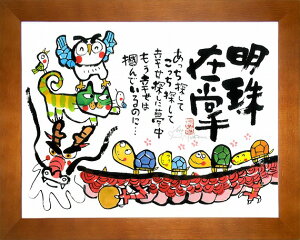 明珠
在掌
あっち探して
こっち探して
幸せ探しに夢中
もう幸せは
掴んでいるのに…